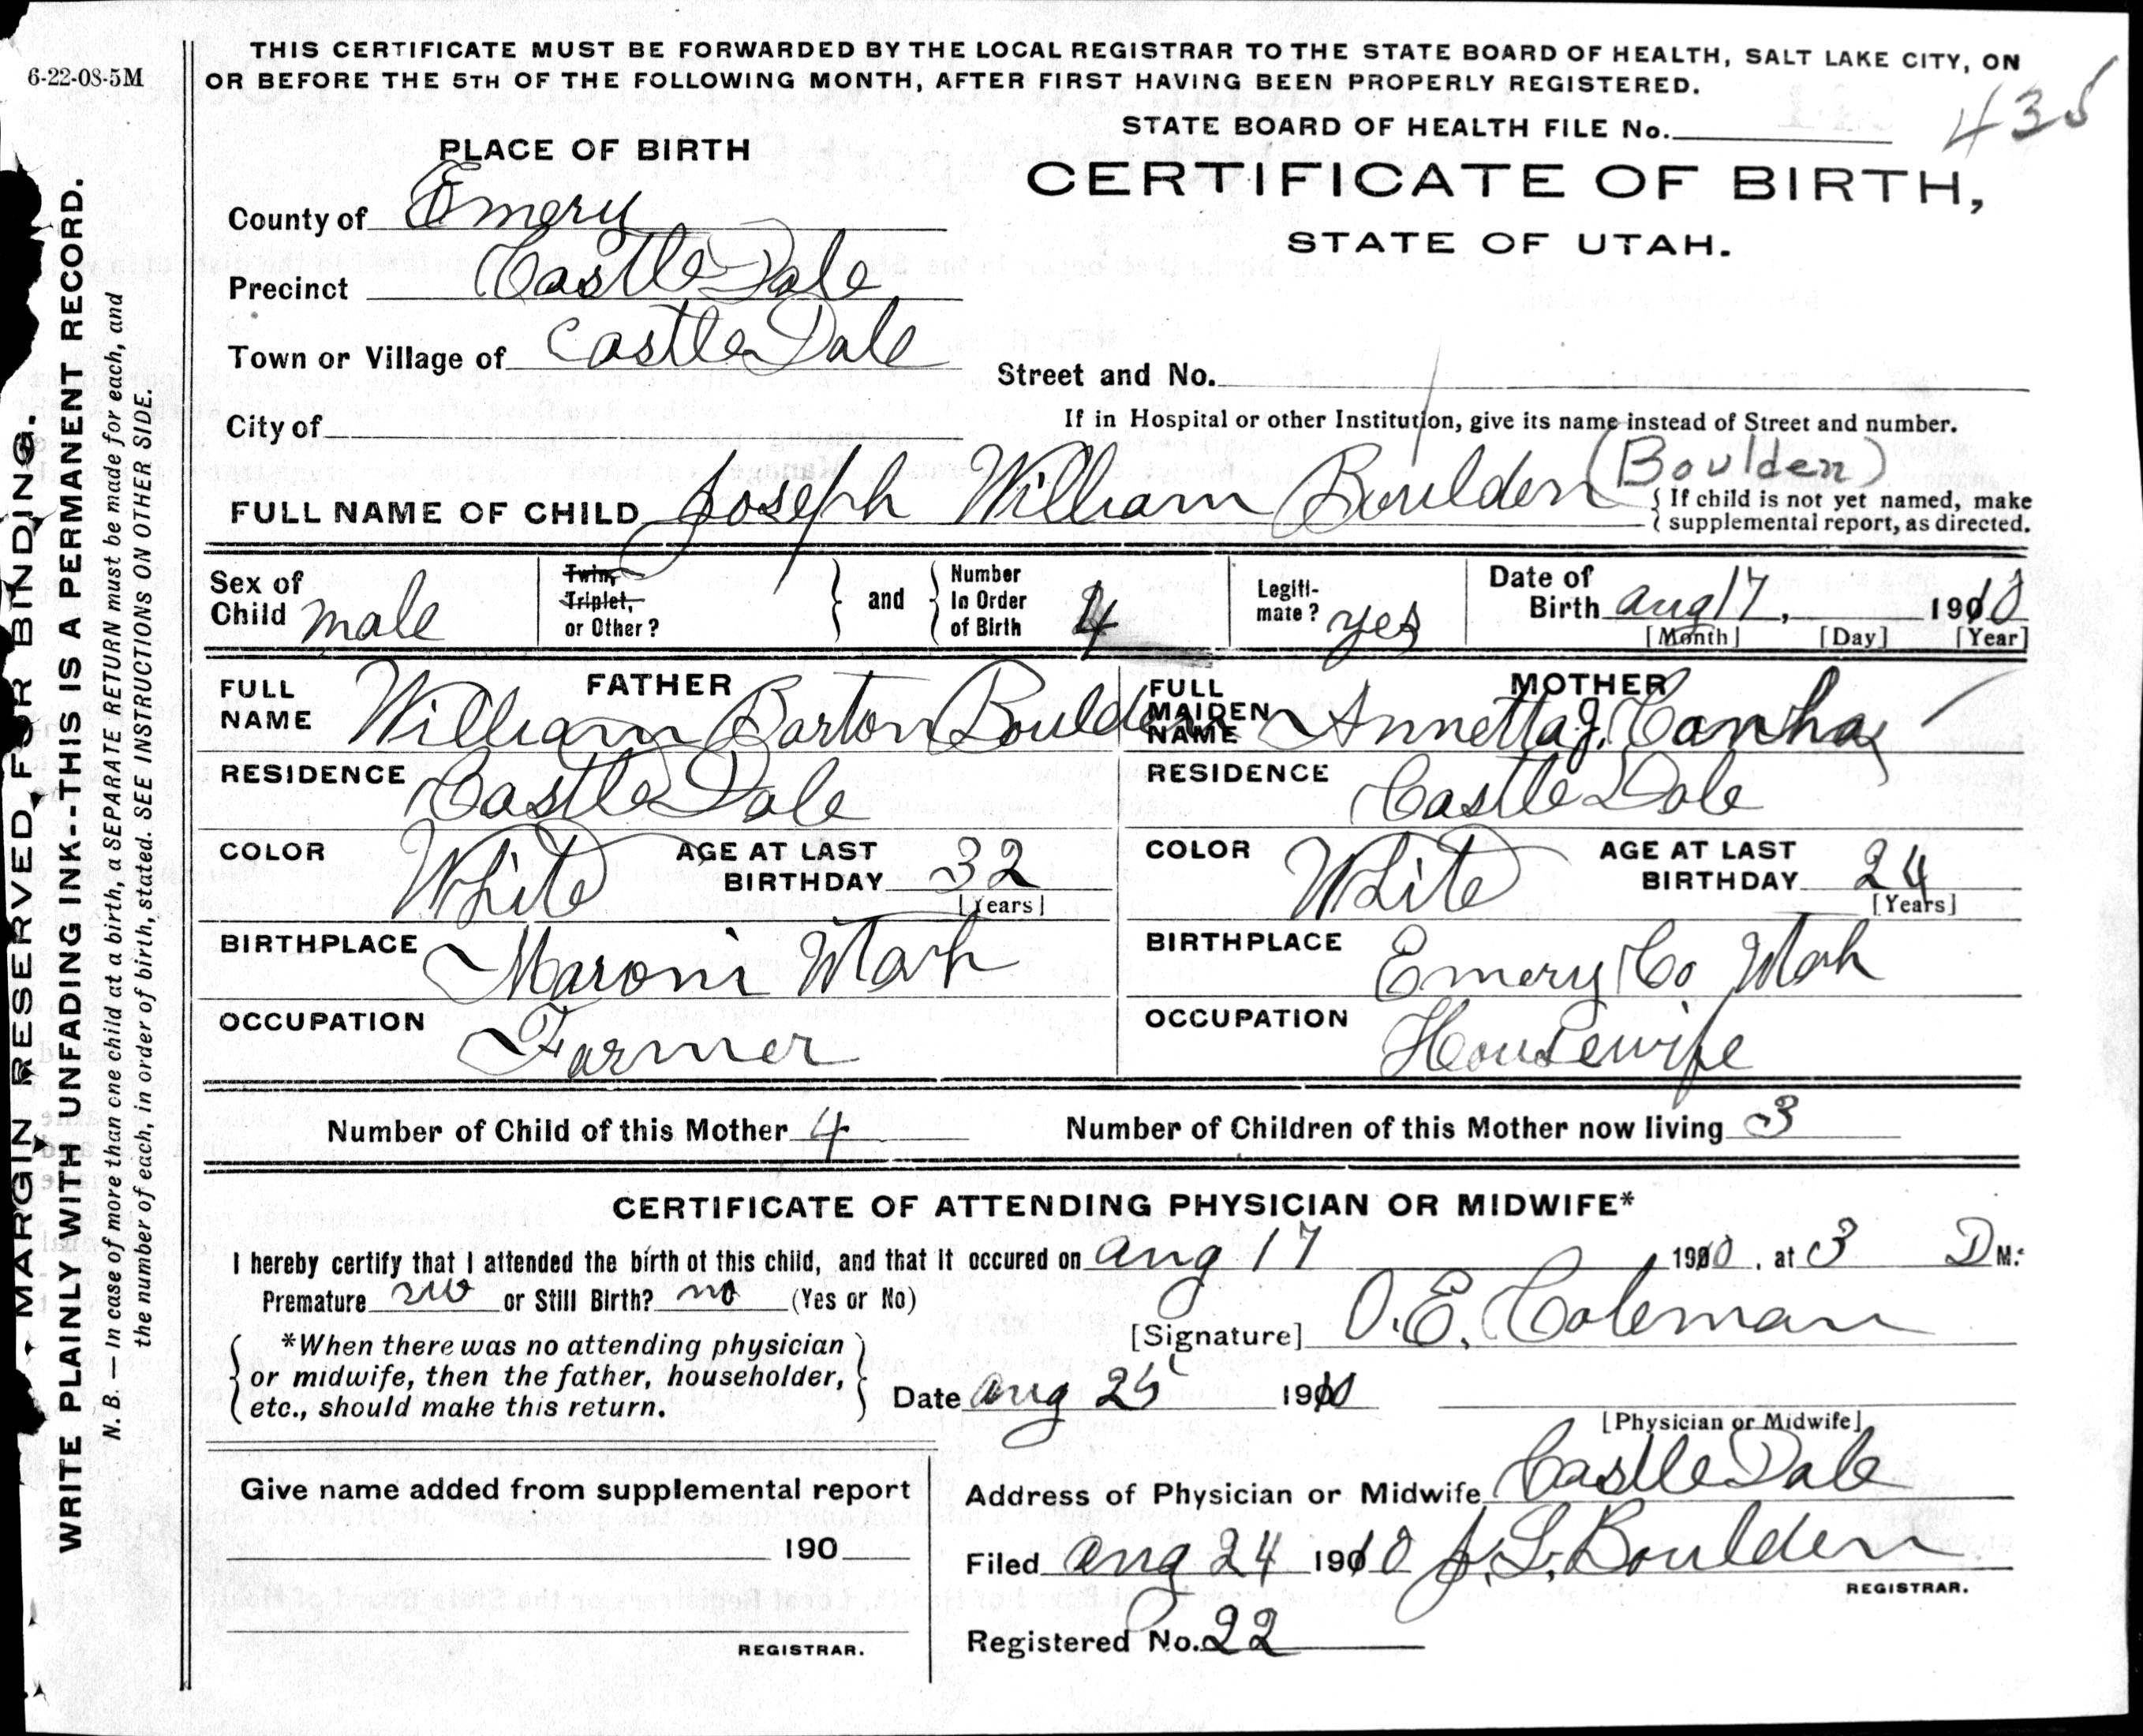 6-22-08-5M
THIS CERTIFICATE MUST BE FORWARDED BY THE LOCAL REGISTRAR TO THE STATE BOARD OF HEALTH, SALT LAKE CITY, ON
OR BEFORE THE 5TH OF THE FOLLOWING MONTH, AFTER FIRST HAVING BEEN PROPERLY REGISTERED.
STATE BOARD OF HEALTH FILE No. 435
PLACE OF BIRTH
CERTIFICATE OF BIRTH,
STATE OF UTAH.
County of Emery
Precinct Castle Dale
Town or Village of Castle Dale
Street and No.
City of
If in Hospital or other Institution, give its name instead of Street and number.
FULL NAME OF CHILD Joseph William Boulden (Boulden)
{ If child is not yet named, make
supplemental report, as directed.
Sex of Child male
Twin, Triplet, or Other? } and { Number In Order of Birth 4
Legiti-mate? yes
Date of Birth Aug 17, 1910
[Month] [Day] [Year]
FATHER
FULL NAME William Barton Boulden
MOTHER
FULL MAIDEN NAME Annetta J.
RESIDENCE Castle Dale
RESIDENCE Castle Dale
COLOR White AGE AT LAST BIRTHDAY 32 [Years]
COLOR White AGE AT LAST BIRTHDAY 24 [Years]
BIRTHPLACE Maroni Utah
BIRTHPLACE Emery Co Utah
OCCUPATION Farmer
OCCUPATION Housewife
Number of Child of this Mother 4
Number of Children of this Mother now living 3
CERTIFICATE OF ATTENDING PHYSICIAN OR MIDWIFE*
I hereby certify that I attended the birth of this child, and that it occured on Aug 17 1910, at 3 M.
Premature no or Still Birth? no (Yes or No)
[Signature] O. E. Coleman
{ *When there was no attending physician
or midwife, then the father, householder,
etc., should make this return. }
Date Aug 25 1910
[Physician or Midwife]
Give name added from supplemental report
190
REGISTRAR.
Address of Physician or Midwife Castle Dale
Filed Aug 24 1910 J. L. Boulden
REGISTRAR.
Registered No. 22
MARGIN RESERVED FOR BINDING.
WRITE PLAINLY WITH UNFADING INK--THIS IS A PERMANENT RECORD.
N. B. — In case of more than one child at a birth, a SEPARATE RETURN must be made for each, and
the number of each, in order of birth, stated. SEE INSTRUCTIONS ON OTHER SIDE.